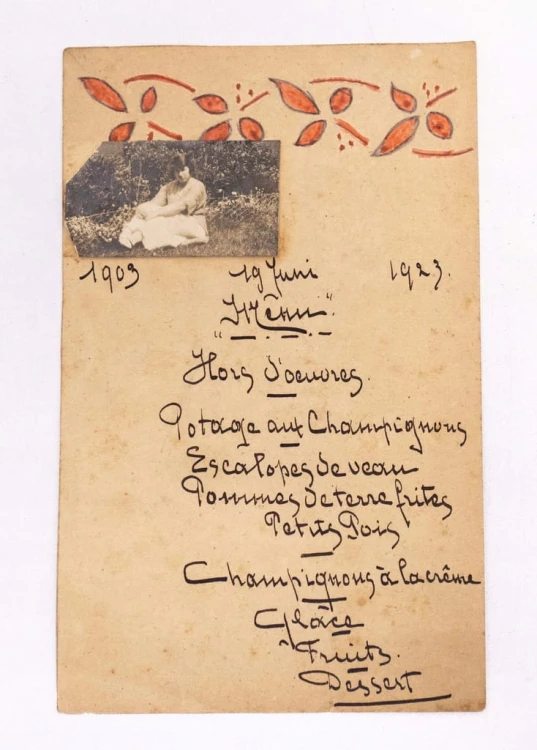 1903 19 Juni 1923.
"Mênu".
Hors d'oeuvres.
Potage aux Champignons
Escalopes de veau
Pommes de terre frites
Petits Pois
Champignons à la crême
Glâce
Fruits.
Dessert